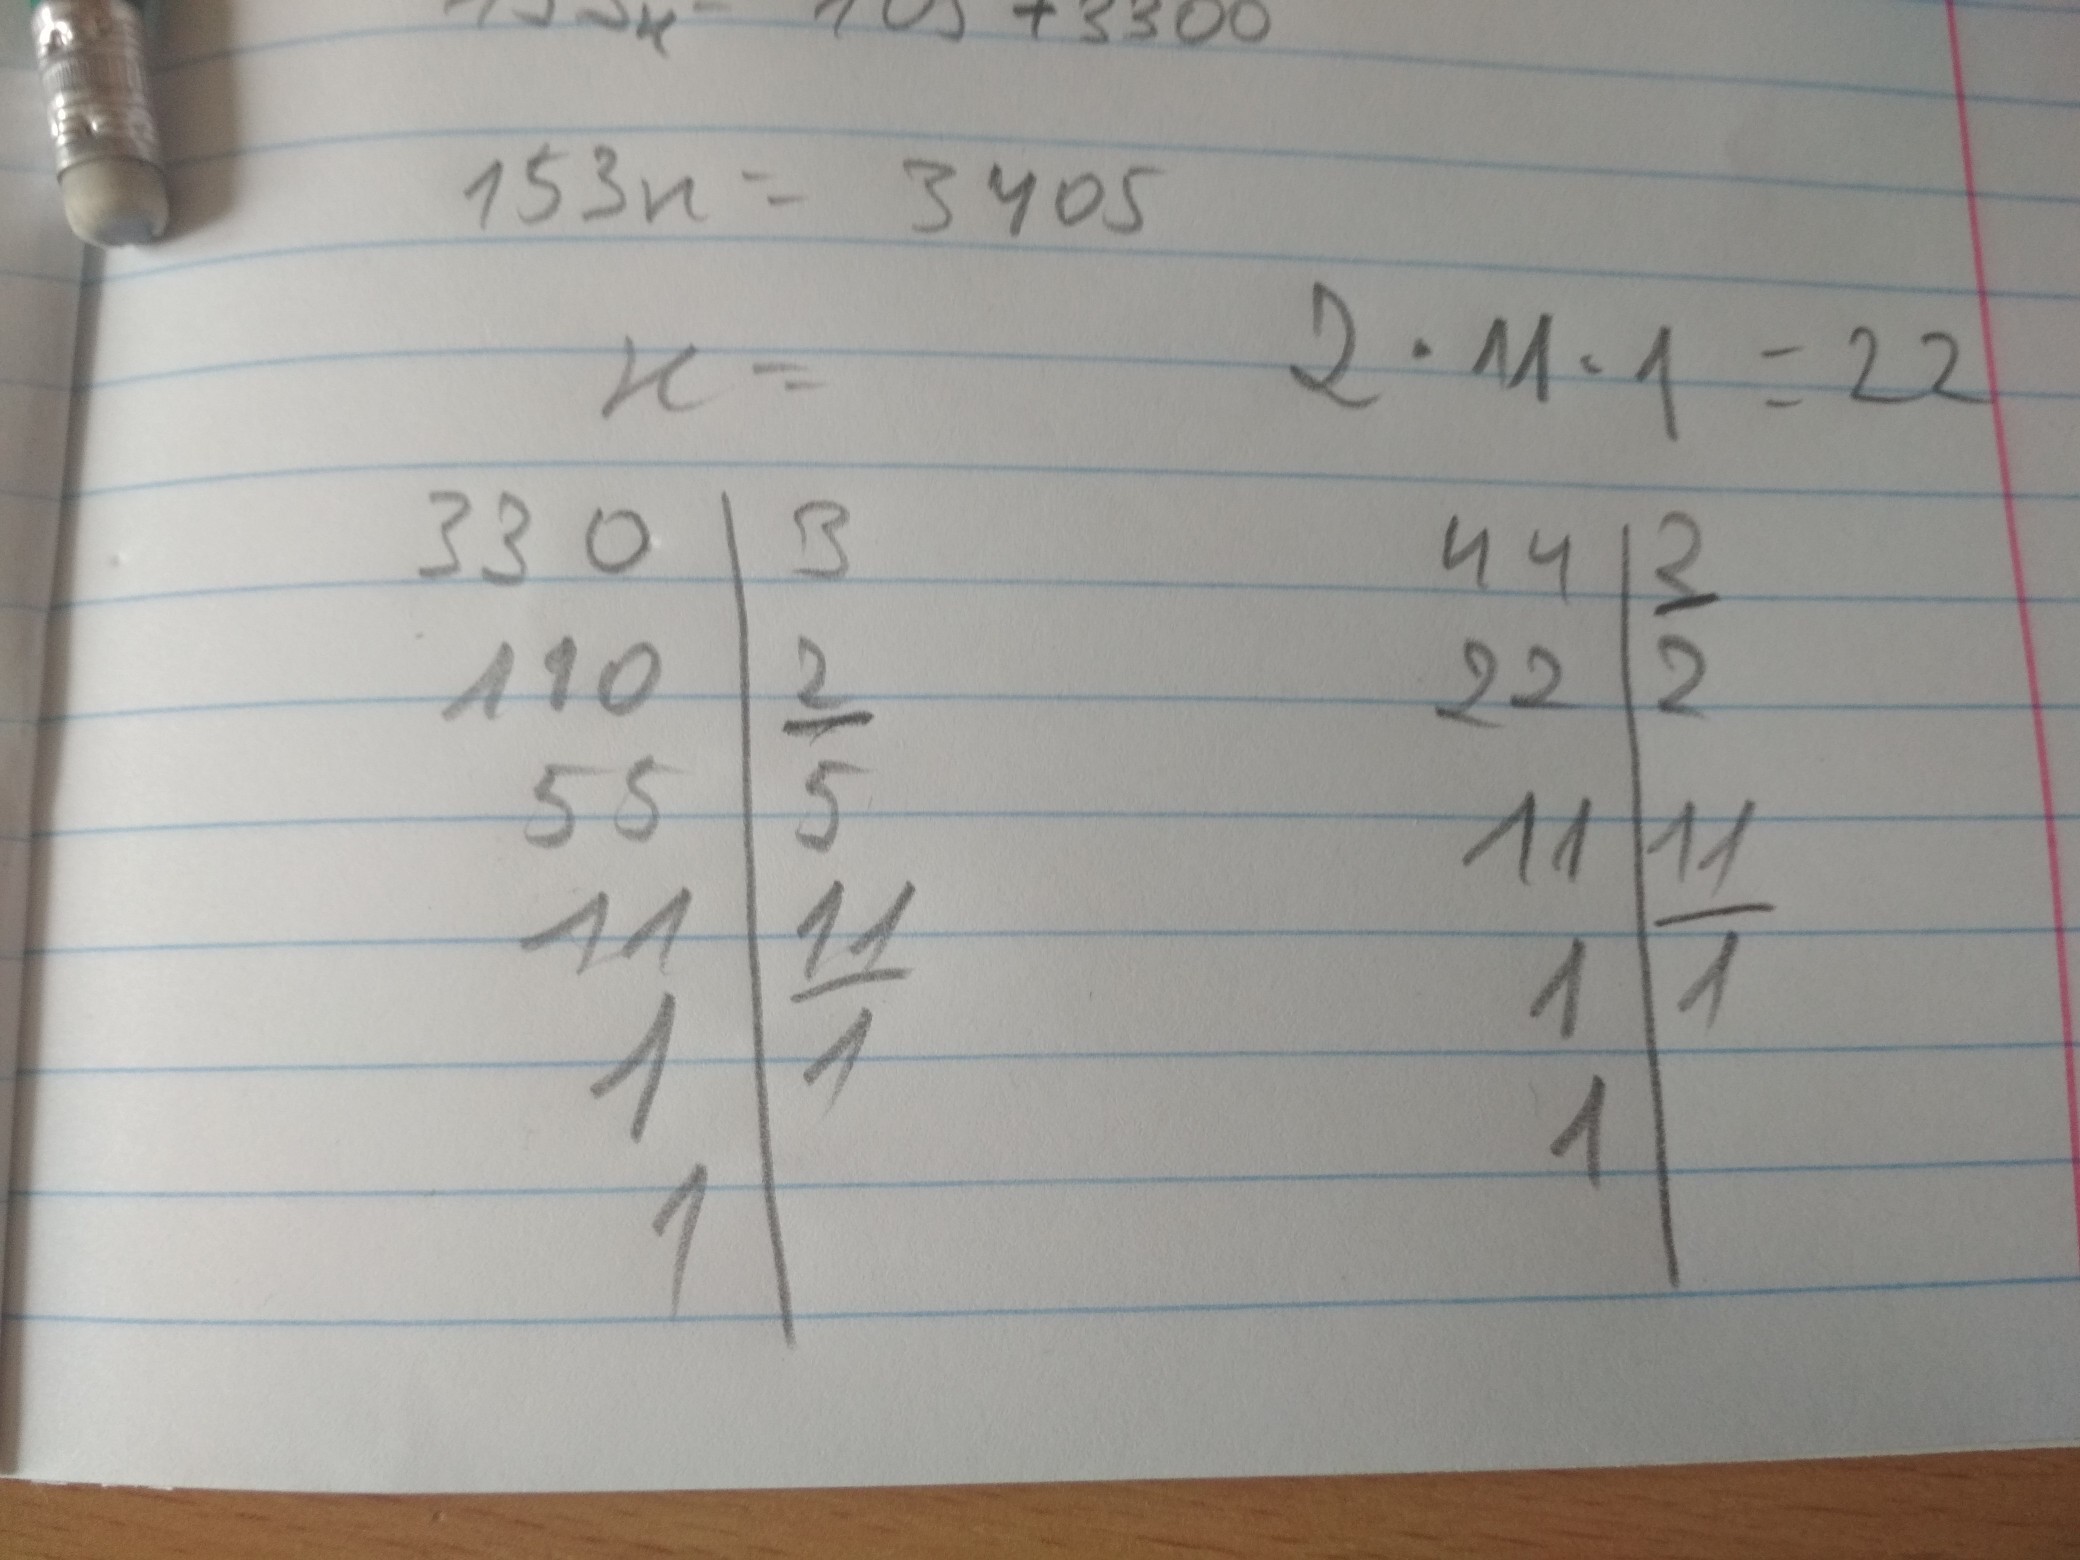 153x = 105 + 3300
153x = 3405
x =
2 · 11 · 1 = 22
330 | 3
110 | 2
55 | 5
11 | 11
1 | 1
1
44 | 2
22 | 2
11 | 11
1 | 1
1